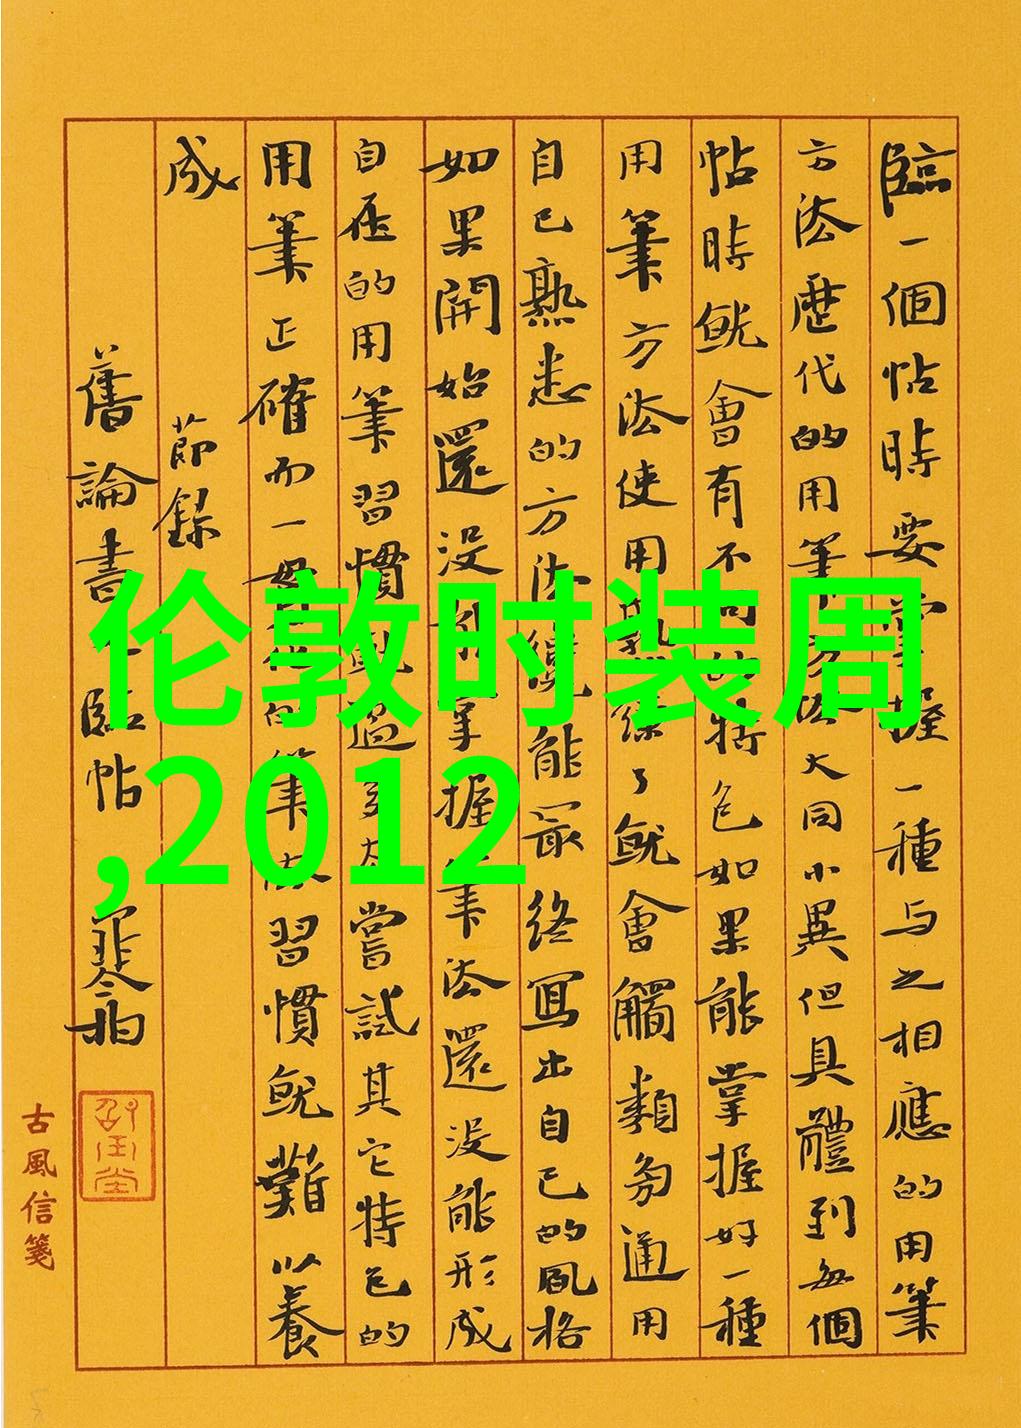 臨一個帖時要掌握一種与之相應的用筆
方法歷代的用筆方法大同小異但具體到每個
帖時就會有不同的特色如果能掌握好一種
用筆方法使用熟練了就會觸類旁通用
自已熟悉的方法纔能最終寫出自已的風格
如果開始還没有掌握筆法還没能形成
自在的用筆習慣就過去嘗試其它特色的
用筆正確而一的筆法習慣就難以養
成 節録
舊論書一臨帖
古風信箋
伦敦时装周
,2012